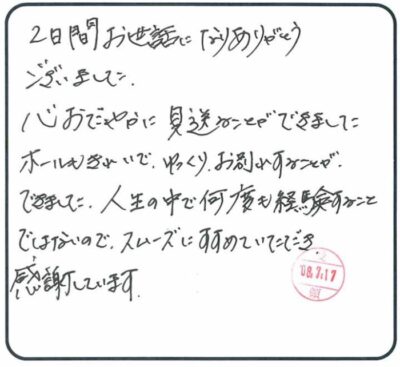 2日間お世話になりありがとう
ございました。
心おだやかに見送ることができました
ホールもきれいで、ゆっくりお別れすることが、
できました。人生の中で何度も経験すること
ではないので、スムーズにすすめていただき
感謝しています。
08.7.17